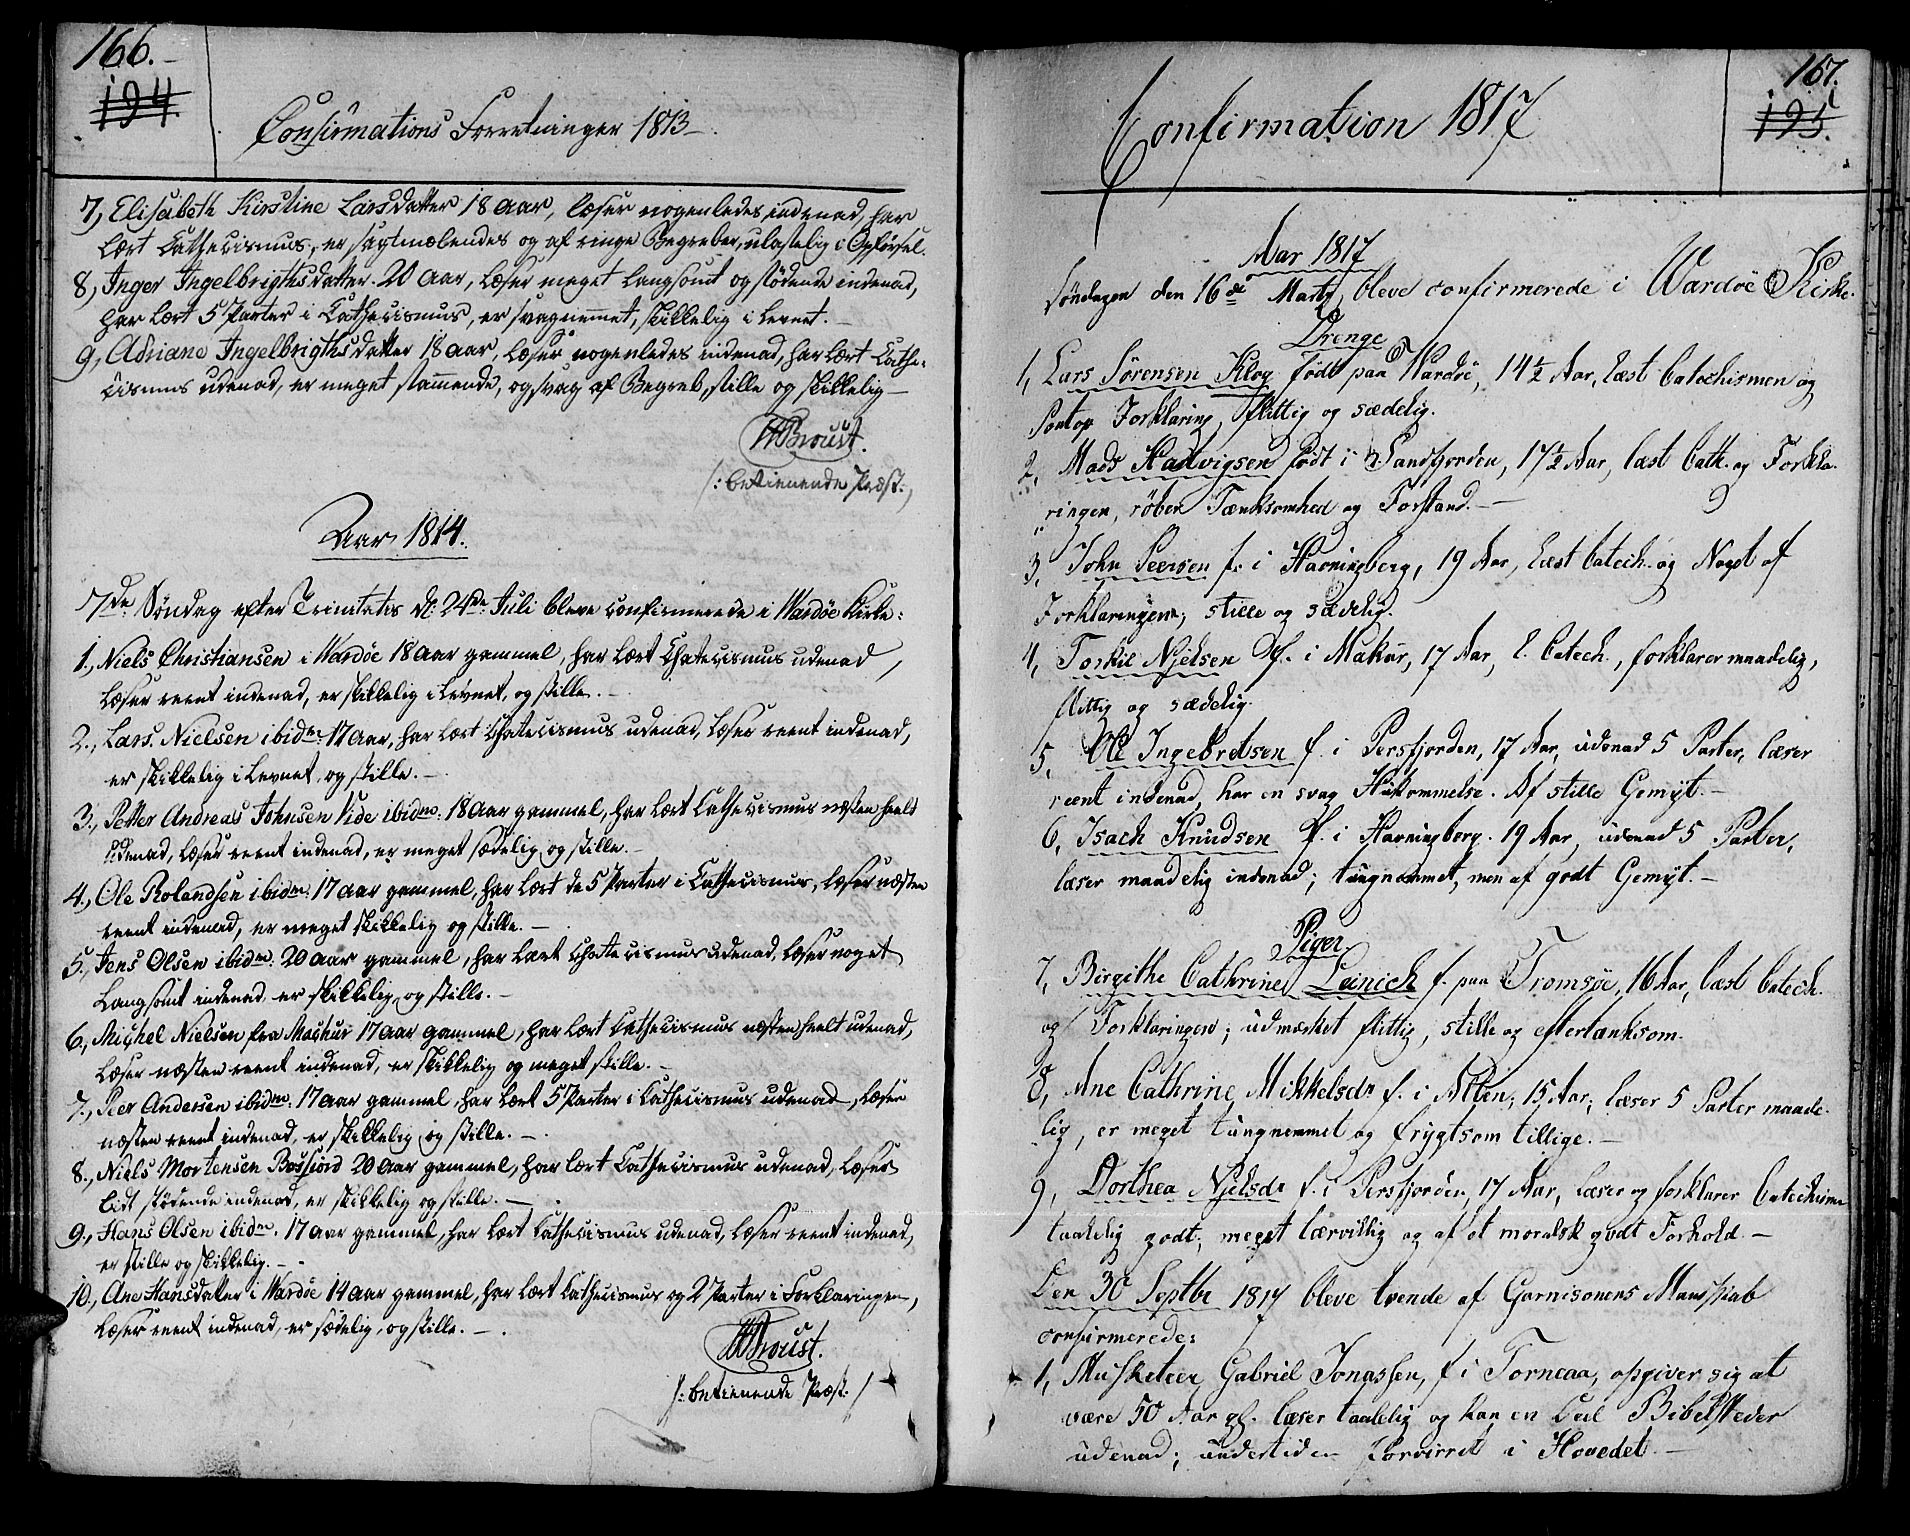 166.
194.
Confirmations Forretninger 1813
7, Elisabeth Kirstine Larsdatter 18 Aar, læser nogenledes indenad, har
lært Cathecismus, er sagtmælendes og af ringe Begreber, ulastelig i Opførsel.
8, Inger Ingelbrigthsdatter. 20 Aar, læser meget langsomt og stødende indenad,
har lært 5 Parter i Cathecismus, er svagnemmet, skikkelig i Levnet.
9, Adriane Ingelbrigthsdatter 18 Aar, læser nogenledes indenad, har lært Cathe-
cismus udenad, er meget stammende, og svag af Begreb, stille og skikkelig
Broust.
/: betienende Præst:/
Aar 1814.
7de Søndag efter Trinitatis d: 24de Juli bleve confirmerede i Wardøe Kirke:
1., Niels Christiansen i Wardøe 18 Aar gammel, har lært Chatecismus udenad,
læser reent indenad, er skikkelig i Levnet, og stille.
2., Lars Nielsen ibidm: 17 Aar, har lært Chatecismus udenad, læser reent indenad,
er skikkelig i Levnet, og stille.
3., Petter Andreas Johnsen Vide ibidm: 18 Aar gammel, har lært Cathecismus næsten heelt
udenad, læser reent indenad, er meget sædelig og stille.
4., Ole Rolandsen ibidm: 17 Aar gammel, har lært de 5 Parter i Cathecismus, læser næsten
reent indenad, er meget skikkelig og stille.
5., Jens Olsen ibidm: 20 Aar gammel, har lært Chatecismus udenad, læser noget
langsomt indenad er skikkelig og stille.
6., Michel Nielsen fra Machur 17 Aar gammel, har lært Cathecismus næsten heelt udenad,
læser næsten reent indenad, er skikkelig og meget stille.
7., Peer Andersen ibidm: 17 Aar gammel, har lært 5 Parter i Cathecismus udenad, læser
næsten reent indenad, er skikkelig og stille.
8., Niels Mortensen Bassfiord 20 Aar gammel, har lært Cathecismus udenad, læser
lidt stødende indenad, er skikkelig og stille.
9., Hans Olsen ibidm. 17 Aar gammel, har lært Cathecismus udenad, læser reent indenad,
er stille og skikkelig.
10., Ane Hansdatter i Wardøe 14 Aar gammel, har lært Cathecismus og 2 Parter i Forklaringen,
læser reent indenad, er sædelig, og stille.
Broust.
/: betienende Præst:/
167.
195.
Confirmation 1817
Aar 1817
Søndagen den 16de Marty bleve confirmerede i Wardøe Kirke.
Drenge
1, Lars Sørensen Klog født paa Vardøe, 14½ Aar, læst Catechismen og
Pontop Forklaring, flittig og sædelig.
2, Mads Hadvigsen født i Sandfjorden, 17½ Aar, læst Cath. og Forkla-
ringen, røber Tænksomhed og Forstand.
3, John Peersen f. i Havningberg, 19 Aar, læst Catech. og Noget af
Forklaringen; stille og sædelig.
4, Torkil Njelsen f. i Makur, 17 Aar, l. Catech., forklarer maadelig,
flittig og sædelig.
5, Ole Ingebretsen f. i Persfjorden, 17 Aar, udenad 5 Parter, læser
reent indenad, har en svag Hukommelse. Af stille Gemyt.
6, Isach Knudsen f. i Havningberg. 19 Aar, udenad 5 Parter,
læser maadelig indenad; tungnemmet, men af godt Gemyt.
Piger
7, Birgithe Cathrine Leinich f. paa Tromsøe, 16 Aar, læst Catech.
og Forklaringen; udmærket flittig, stille og eftertænksom.
8, Ane Cathrine Mikkelsdr f. i Alten; 15 Aar; læser 5 Parter maade-
lig, er meget tungnemmet og frygtsom tillige.
9, Dorthea Njelsdr f. i Persfjorden, 17 Aar, læser og forklarer Catechism
taalelig godt; meget lærvillig og af et moralsk godt Forhold.
Den 30 Septbr 1817 bleve tvende af Garnisonens Mandskab
confirmerede:
1, Musketeer Gabriel Jonassen, f. i Torneaa, opgiver sig at
være 50 Aar gl. læser taalelig og kan en Deel Bibelsteder
udenad; undertiden forvirret i Hovedet.